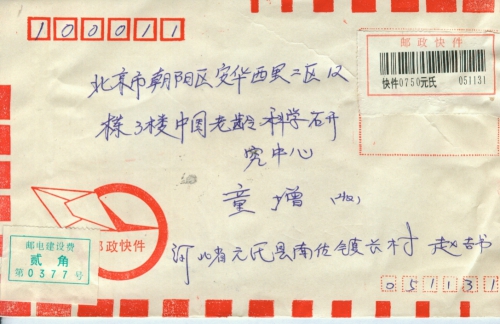 100011
邮政快件
快件0750元氏 051131
北京市朝阳区安华西里二区12
栋3楼中国老龄科学研
究中心
童增（收）
邮政快件
邮电建设费
贰角
第0377号
河北省元氏县南佐镇长村 赵吉书
051131